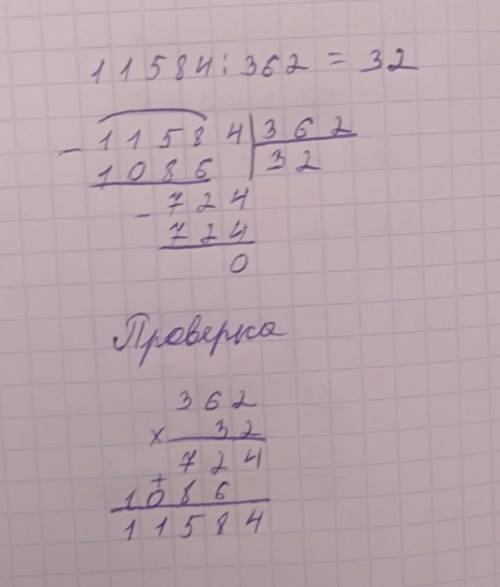 11584 : 362 = 32
- 11584 | 362
1086 | 32
- 724
724
0
Проверка
362
x 32
724
+
1086
11584